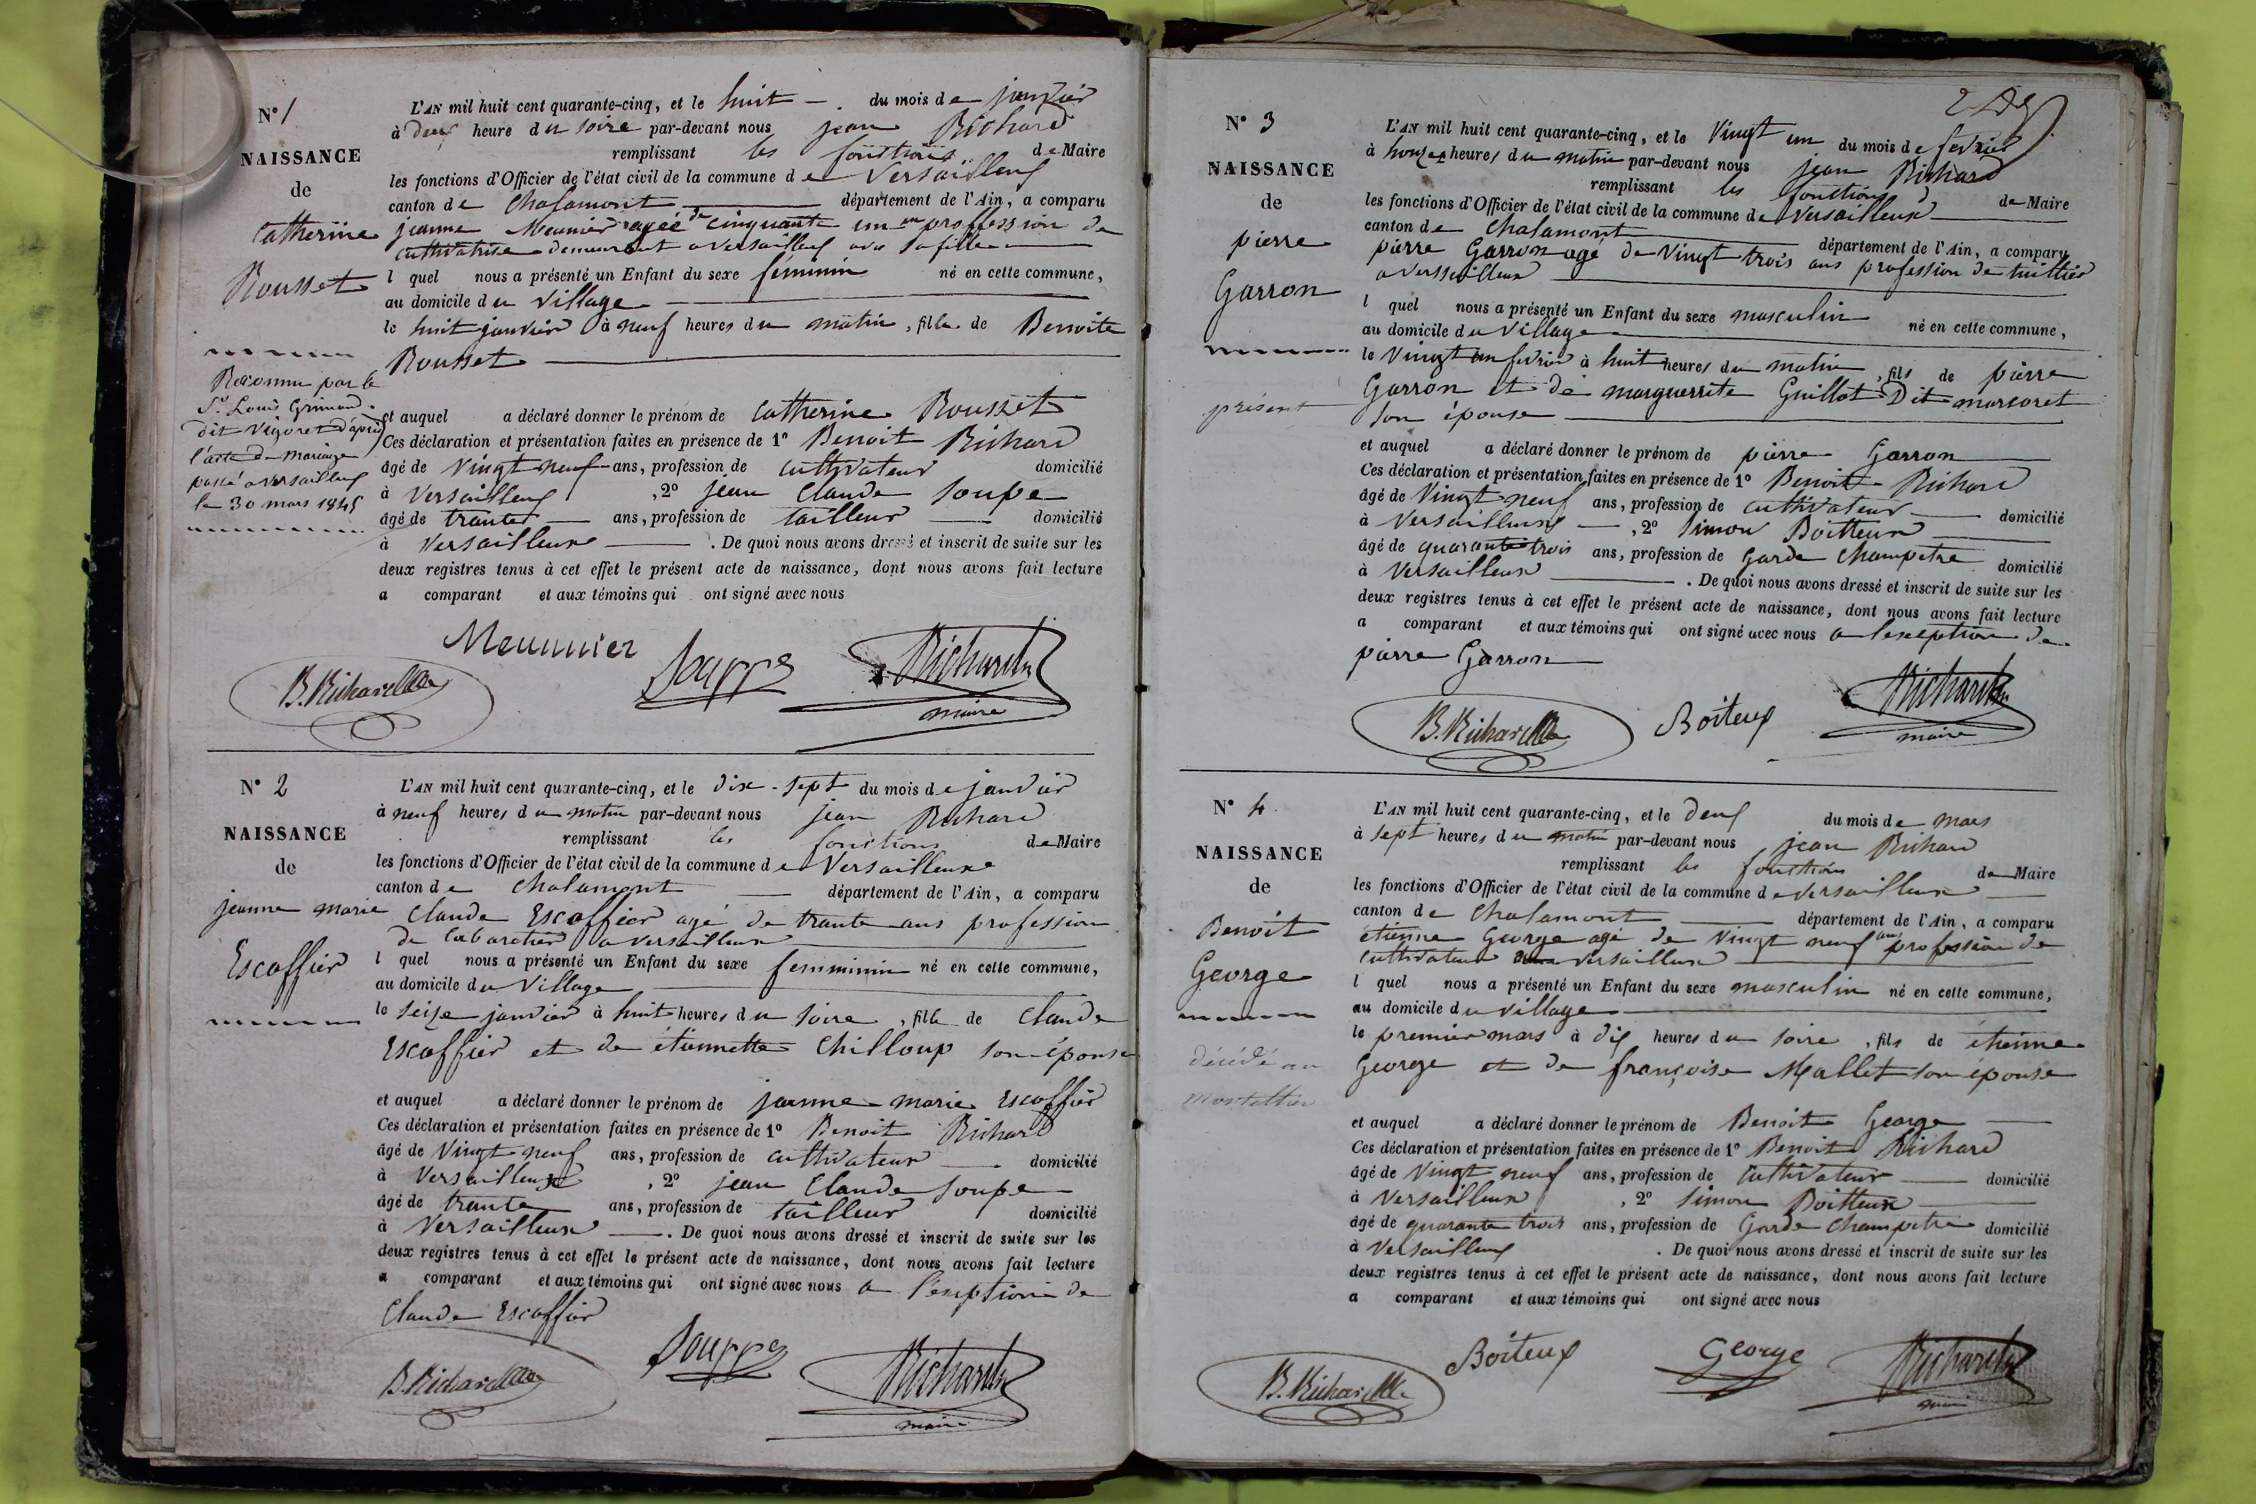 N° 1
NAISSANCE
de
Catherine
Rousset
Reconnu par le
Sr. Louis Grimaud
dit Vigoret d'après
l'acte de mariage
passé a versailleux
le 30 mars 1845
L'AN mil huit cent quarante-cinq, et le huit du mois de janvier
à deux heure du soire par-devant nous jean Richard
remplissant les fonctions de Maire
les fonctions d'Officier de l'état civil de la commune de Versailleux
canton de Chalamont département de l'Ain, a comparu
jeanne Meunier agée de cinquante un ans proffession de
cultivatrise demeurant a versailleux ava sa fille
l quel nous a présenté un Enfant du sexe féminin né en cette commune,
au domicile du village
le huit janvier à neuf heures du matin, fille de Benoite
Rousset
et auquel a déclaré donner le prénom de Catherine Rousset
Ces déclaration et présentation faites en présence de 1° Benoit Richard
âgé de vingt neuf ans, profession de cultivateur domicilié
à Versailleux, 2° jean Claude Soupe
âgé de trante ans, profession de tailleur domicilié
à Versailleux. De quoi nous avons dressé et inscrit de suite sur les
deux registres tenus à cet effet le présent acte de naissance, dont nous avons fait lecture
a comparant et aux témoins qui ont signé avec nous
Meunnier
B. Richard Souppe Richard
maire
N° 2
NAISSANCE
de
jeanne marie
Escoffier
L'AN mil huit cent quarante-cinq, et le dix-sept du mois de janvier
à neuf heures du matin par-devant nous jean Richard
remplissant les fonctions de Maire
les fonctions d'Officier de l'état civil de la commune de Versailleux
canton de Chalamont département de l'Ain, a comparu
Claude Escoffier agé de trante ans profession
de cabaretier a versailleux
l quel nous a présenté un Enfant du sexe femminin né en cette commune,
au domicile du Village
le seize janvier à huit heures du soire, fille de Claude
Escoffier et de étiennette Chilloup son épouse
et auquel a déclaré donner le prénom de jeanne marie Escoffier
Ces déclaration et présentation faites en présence de 1° Benoit Richard
âgé de Vingt neuf ans, profession de cultivateur domicilié
à Versailleux, 2° jean Claude Soupe
âgé de trante ans, profession de tailleur domicilié
à Versailleux. De quoi nous avons dressé et inscrit de suite sur les
deux registres tenus à cet effet le présent acte de naissance, dont nous avons fait lecture
a comparant et aux témoins qui ont signé avec nous a l'exeption de
Claude Escoffier
B. Richard Souppe Richard
maire
N° 3
NAISSANCE
de
pierre
Garron
présent
L'AN mil huit cent quarante-cinq, et le Vingt un du mois de fevrier
à honze heures du matin par-devant nous jean Richard
remplissant les fonctions de Maire
les fonctions d'Officier de l'état civil de la commune de Versailleux
canton de Chalamont département de l'Ain, a comparu
pierre Garron agé de Vingt trois ans profession de tuillier
a versseilleux
l quel nous a présenté un Enfant du sexe masculin né en cette commune,
au domicile du Village
le Vingt un fevrier à huit heures du matin, fils de pierre
Garron et de marguerrite Guillot Dit marsoret
son épouse
et auquel a déclaré donner le prénom de pierre Garron
Ces déclaration et présentation faites en présence de 1° Benoit Richard
âgé de Vingt neuf ans, profession de cultivateur domicilié
à Versailleux, 2° Simon Boitteux
âgé de quarante trois ans, profession de garde Champetre domicilié
à Versailleux. De quoi nous avons dressé et inscrit de suite sur les
deux registres tenus à cet effet le présent acte de naissance, dont nous avons fait lecture
a comparant et aux témoins qui ont signé avec nous a l'exeption de
pierre Garron
B. Richard Boiteux Richard
maire
N° 4
NAISSANCE
de
Benoit
George
décédé au
montellier
L'AN mil huit cent quarante-cinq, et le deux du mois de mars
à sept heures du matin par-devant nous jean Richard
remplissant les fonctions de Maire
les fonctions d'Officier de l'état civil de la commune de versailleux
canton de Chalamont département de l'Ain, a comparu
étienne George agé de Vingt neuf ans profession de
cultivateur a versailleux
l quel nous a présenté un Enfant du sexe masculin né en cette commune,
au domicile du village
le premier mars à dix heures du soire, fils de étienne
George et de françoise Mallet son épouse
et auquel a déclaré donner le prénom de Benoit George
Ces déclaration et présentation faites en présence de 1° Benoit Richard
âgé de Vingt neuf ans, profession de cultivateur domicilié
à Versailleux, 2° Simon Boitteux
âgé de quarante trois ans, profession de Garde Champetre domicilié
à Versailleux. De quoi nous avons dressé et inscrit de suite sur les
deux registres tenus à cet effet le présent acte de naissance, dont nous avons fait lecture
a comparant et aux témoins qui ont signé avec nous
B. Richard Boiteux George Richard
maire